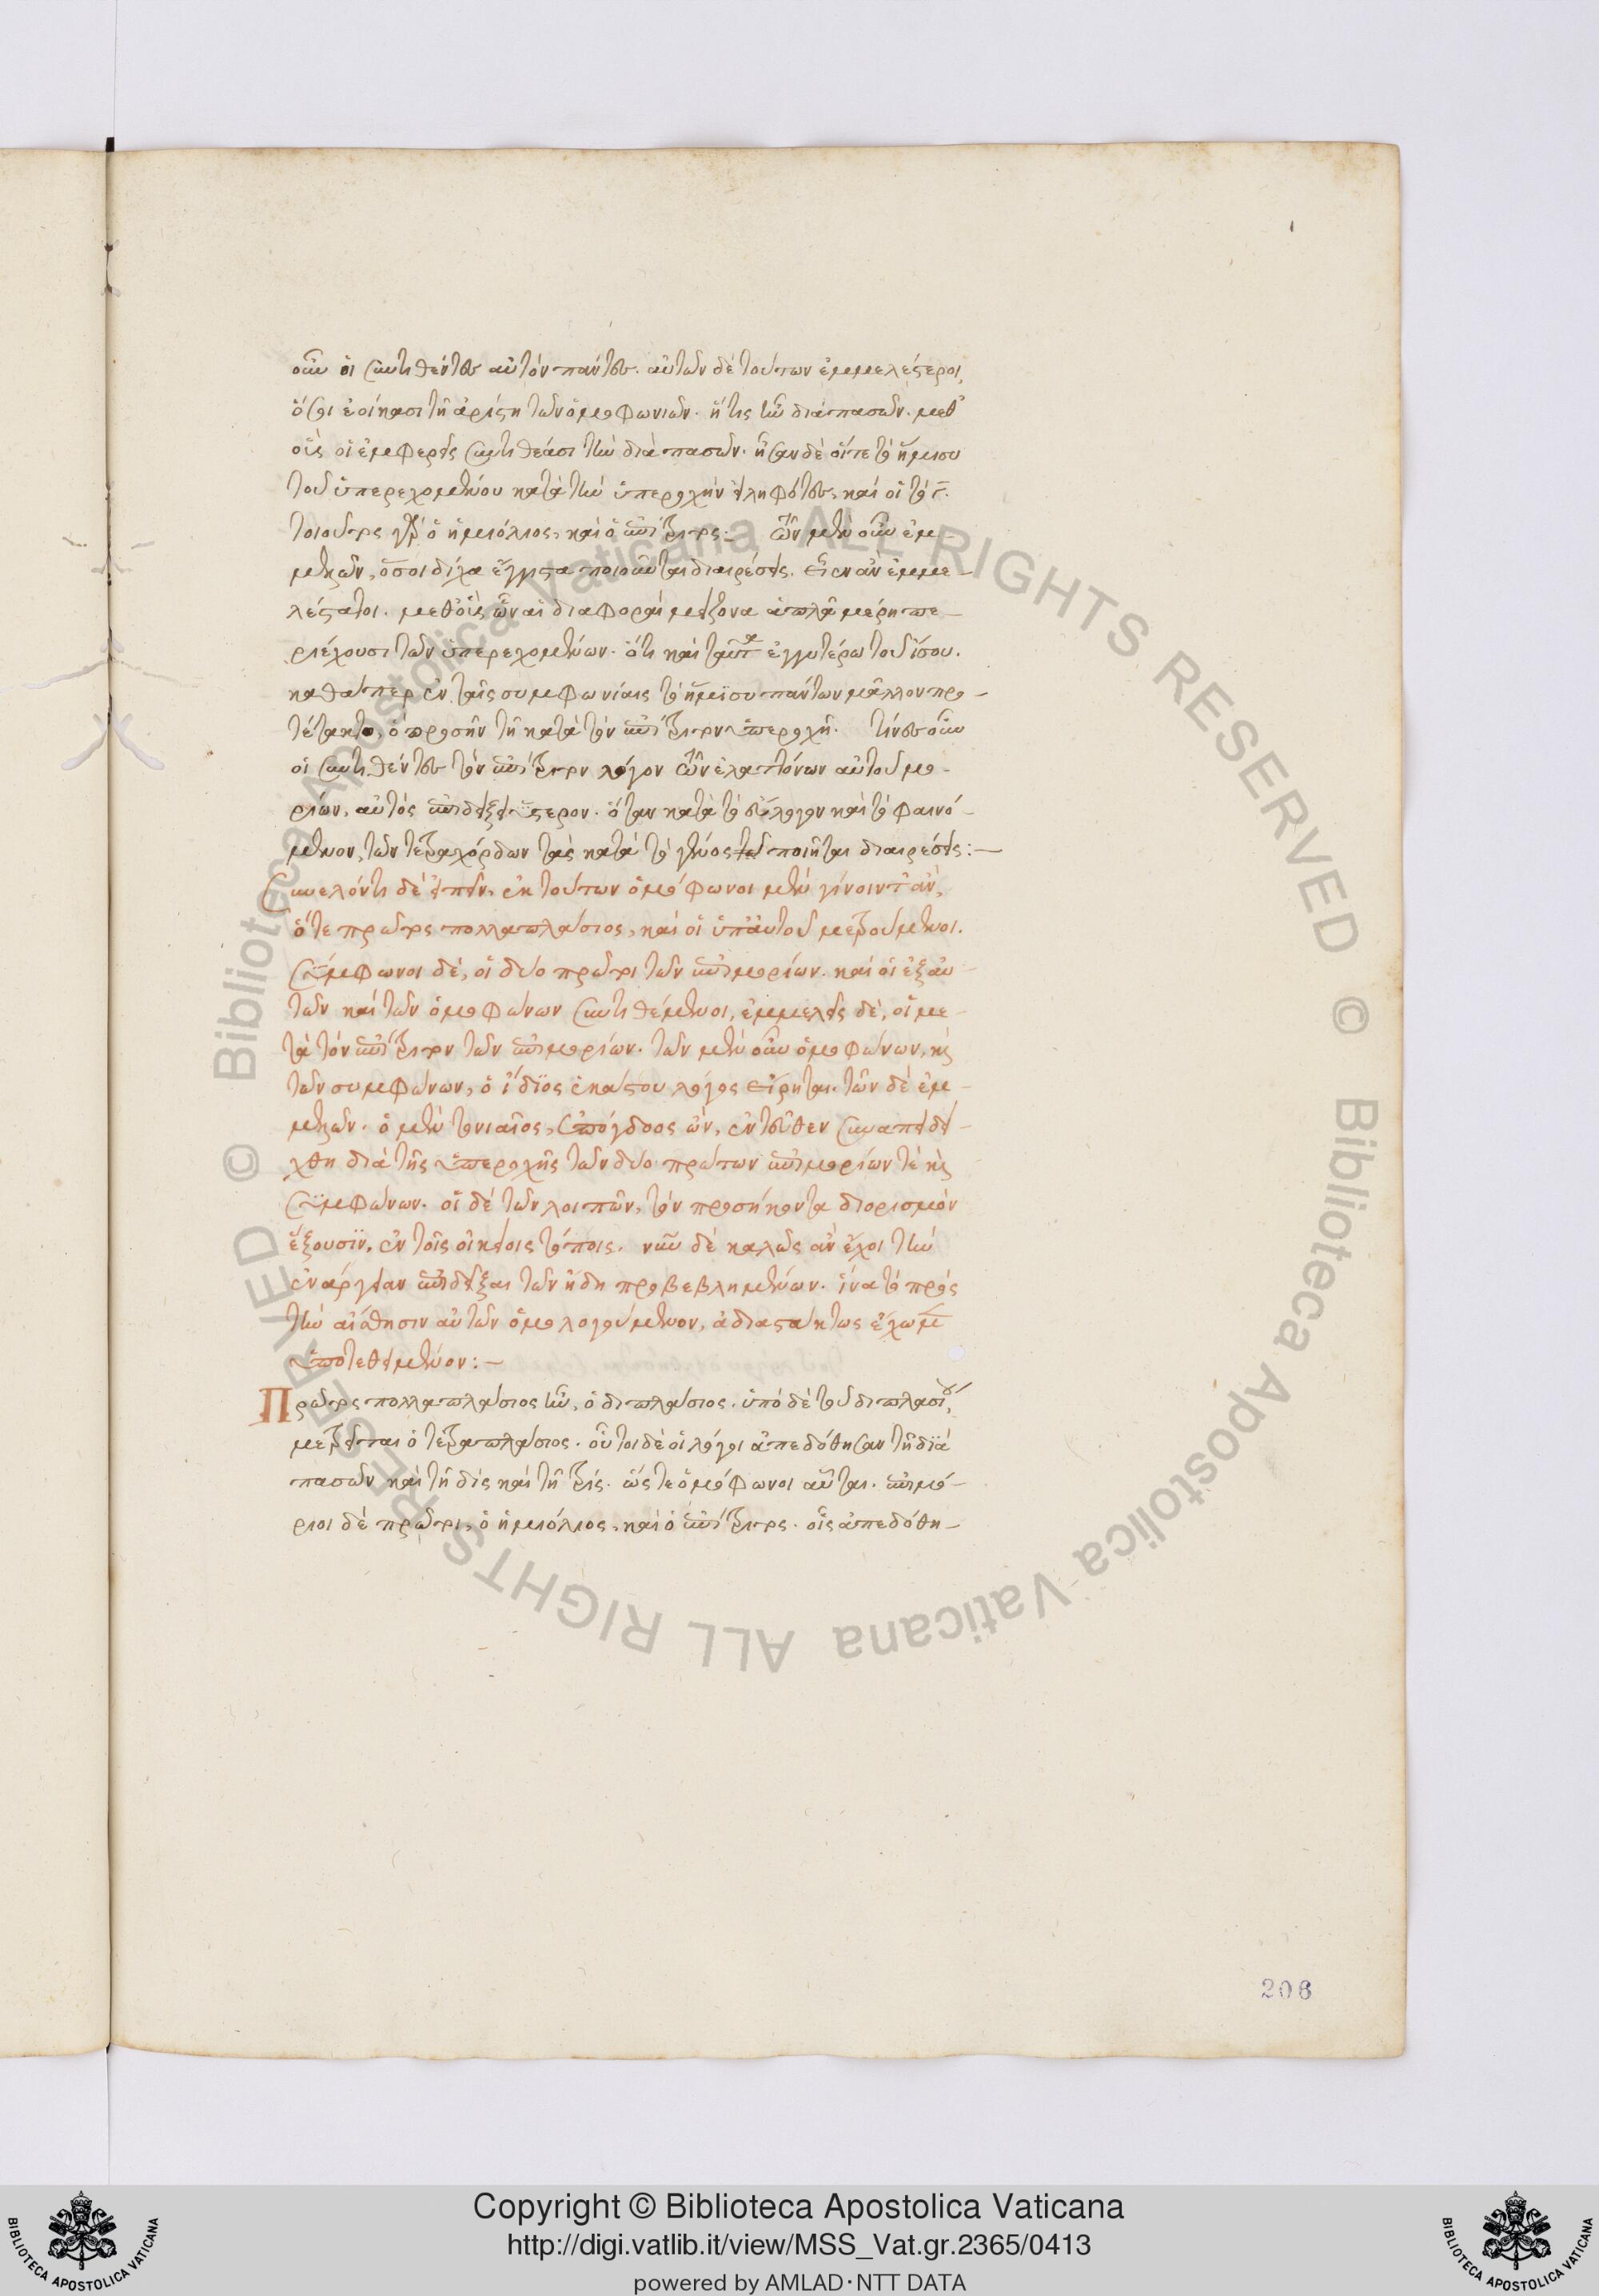 οὖν οἱ συντιθέντες αὐτὸν πάντες. αὐτῶν δὲ τούτων ἐμμελέστεροι,
ὅσοι ἐοίκασι τῇ ἀρίστῃ τῶν ὁμοφωνιῶν. ἥτις ἦν διὰ πασῶν. μεθ'
οὓς οἱ ἐμφερεῖς συντιθεῖσι τὴν διὰ πασῶν. ἦσαν δὲ οἵ τε τὸ ἥμισυ
τοῦ ὑπερεχομένου κατὰ τὴν ὑπεροχὴν εἰληφότες, καὶ οἱ τὸ γ̅.
τοιοῦτος γὰρ ὁ ἡμιόλιος, καὶ ὁ ἐπίτριτος:– τῶν μὲν οὖν ἐμ–
μελῶν, ὅσοι δίχα ἔγγιστα ποιοῦνται διαιρέσεις. εἶεν ἂν ἐμμε–
λέστατοι. μεθ' οὓς, ὧν αἱ διαφοραὶ μείζονα ἁπλᾶ μέρη πε–
ριέχουσι τῶν ὑπερεχομένων. ὅτι καὶ ταῦτα ἐγγυτέρω τοῦ ἴσου.
καθάπερ ἐν ταῖς συμφωνίαις τὸ ἥμισυ πάντων μᾶλλον προ–
τέτακτο, ὃ προσῆν τῇ κατὰ τὸν ἐπίτριτον ὑπεροχῇ. τίνες οὖν
οἱ συντιθέντες τὸν ἐπίτριτον λόγον τῶν ἐλαττόνων αὐτοῦ μο–
ρίων, αὐτὸς ἐπιδείξει ὕστερον. ὅταν κατὰ τὸ εὔλογον καὶ τὸ φαινό–
μενον, τῶν τετραχόρδων τὰς κατὰ τὸ γένος ποιῆται διαιρέσεις:–
Συνελόντι δὲ εἰπεῖν, ἐκ τούτων ὁμόφωνοι μὲν γίνοιντ' ἂν,
ὅ τε πρῶτος πολλαπλάσιος, καὶ οἱ ὑπ' αὐτοῦ μετρούμενοι.
Σύμφωνοι δὲ, οἱ δύο πρῶτοι τῶν ἐπιμορίων. καὶ οἱ ἐξ αὐ–
τῶν καὶ τῶν ὁμοφώνων συντιθέμενοι, ἐμμελεῖς δὲ, οἱ με–
τὰ τὸν ἐπίτριτον τῶν ἐπιμορίων. τῶν μὲν οὖν ὁμοφώνων, κ̀
τῶν συμφώνων, ὁ ἴδιος ἑκάστου λόγος εἴρηται. τῶν δὲ ἐμ–
μελῶν. ὁ μὲν τονιαῖος, ἐπόγδοος ὢν, ἐντεῦθεν συναπεδεί–
χθη διὰ τῆς ὑπεροχῆς τῶν δύο πρώτων ἐπιμορίων τὲ κ̀
συμφώνων. οἱ δὲ τῶν λοιπῶν, τὸν προσήκοντα διορισμὸν
ἕξουσιν, ἐν τοῖς οἰκείοις τόποις. νῦν δὲ καλῶς ἂν ἔχοι τὴν
ἐνάργειαν ἐπιδεῖξαι τῶν ἤδη προβεβλημένων. ἵνα τὸ πρὸς
τὴν αἴσθησιν αὐτῶν ὁμολογούμενον, ἀδιαστάκτως ἔχωμεν
ὑποτεθειμένον:–
Πρῶτος πολλαπλάσιος ἦν, ὁ διπλάσιος. ὑπὸ δὲ τοῦ διπλασίου,
μετρεῖται ὁ τετραπλάσιος. οὗτοι δὲ οἱ λόγοι ἀπεδόθησαν τῇ διὰ
πασῶν καὶ τῇ δὶς καὶ τῇ τρίς. ὥστε ὁμόφωνοι αὗται. ἐπιμό–
ριοι δὲ πρῶτοι, ὁ ἡμιόλιος, καὶ ὁ ἐπίτριτος. οἷς ἀπεδόθη–
206
© Biblioteca Apostolica Vaticana ALL RIGHTS RESERVED © Biblioteca Apostolica Vaticana ALL RIGHTS RESERVED
BIBLIOTECA APOSTOLICA VATICANA
Copyright © Biblioteca Apostolica Vaticana
http://digi.vatlib.it/view/MSS_Vat.gr.2365/0413
powered by AMLAD·NTT DATA
BIBLIOTECA APOSTOLICA VATICANA